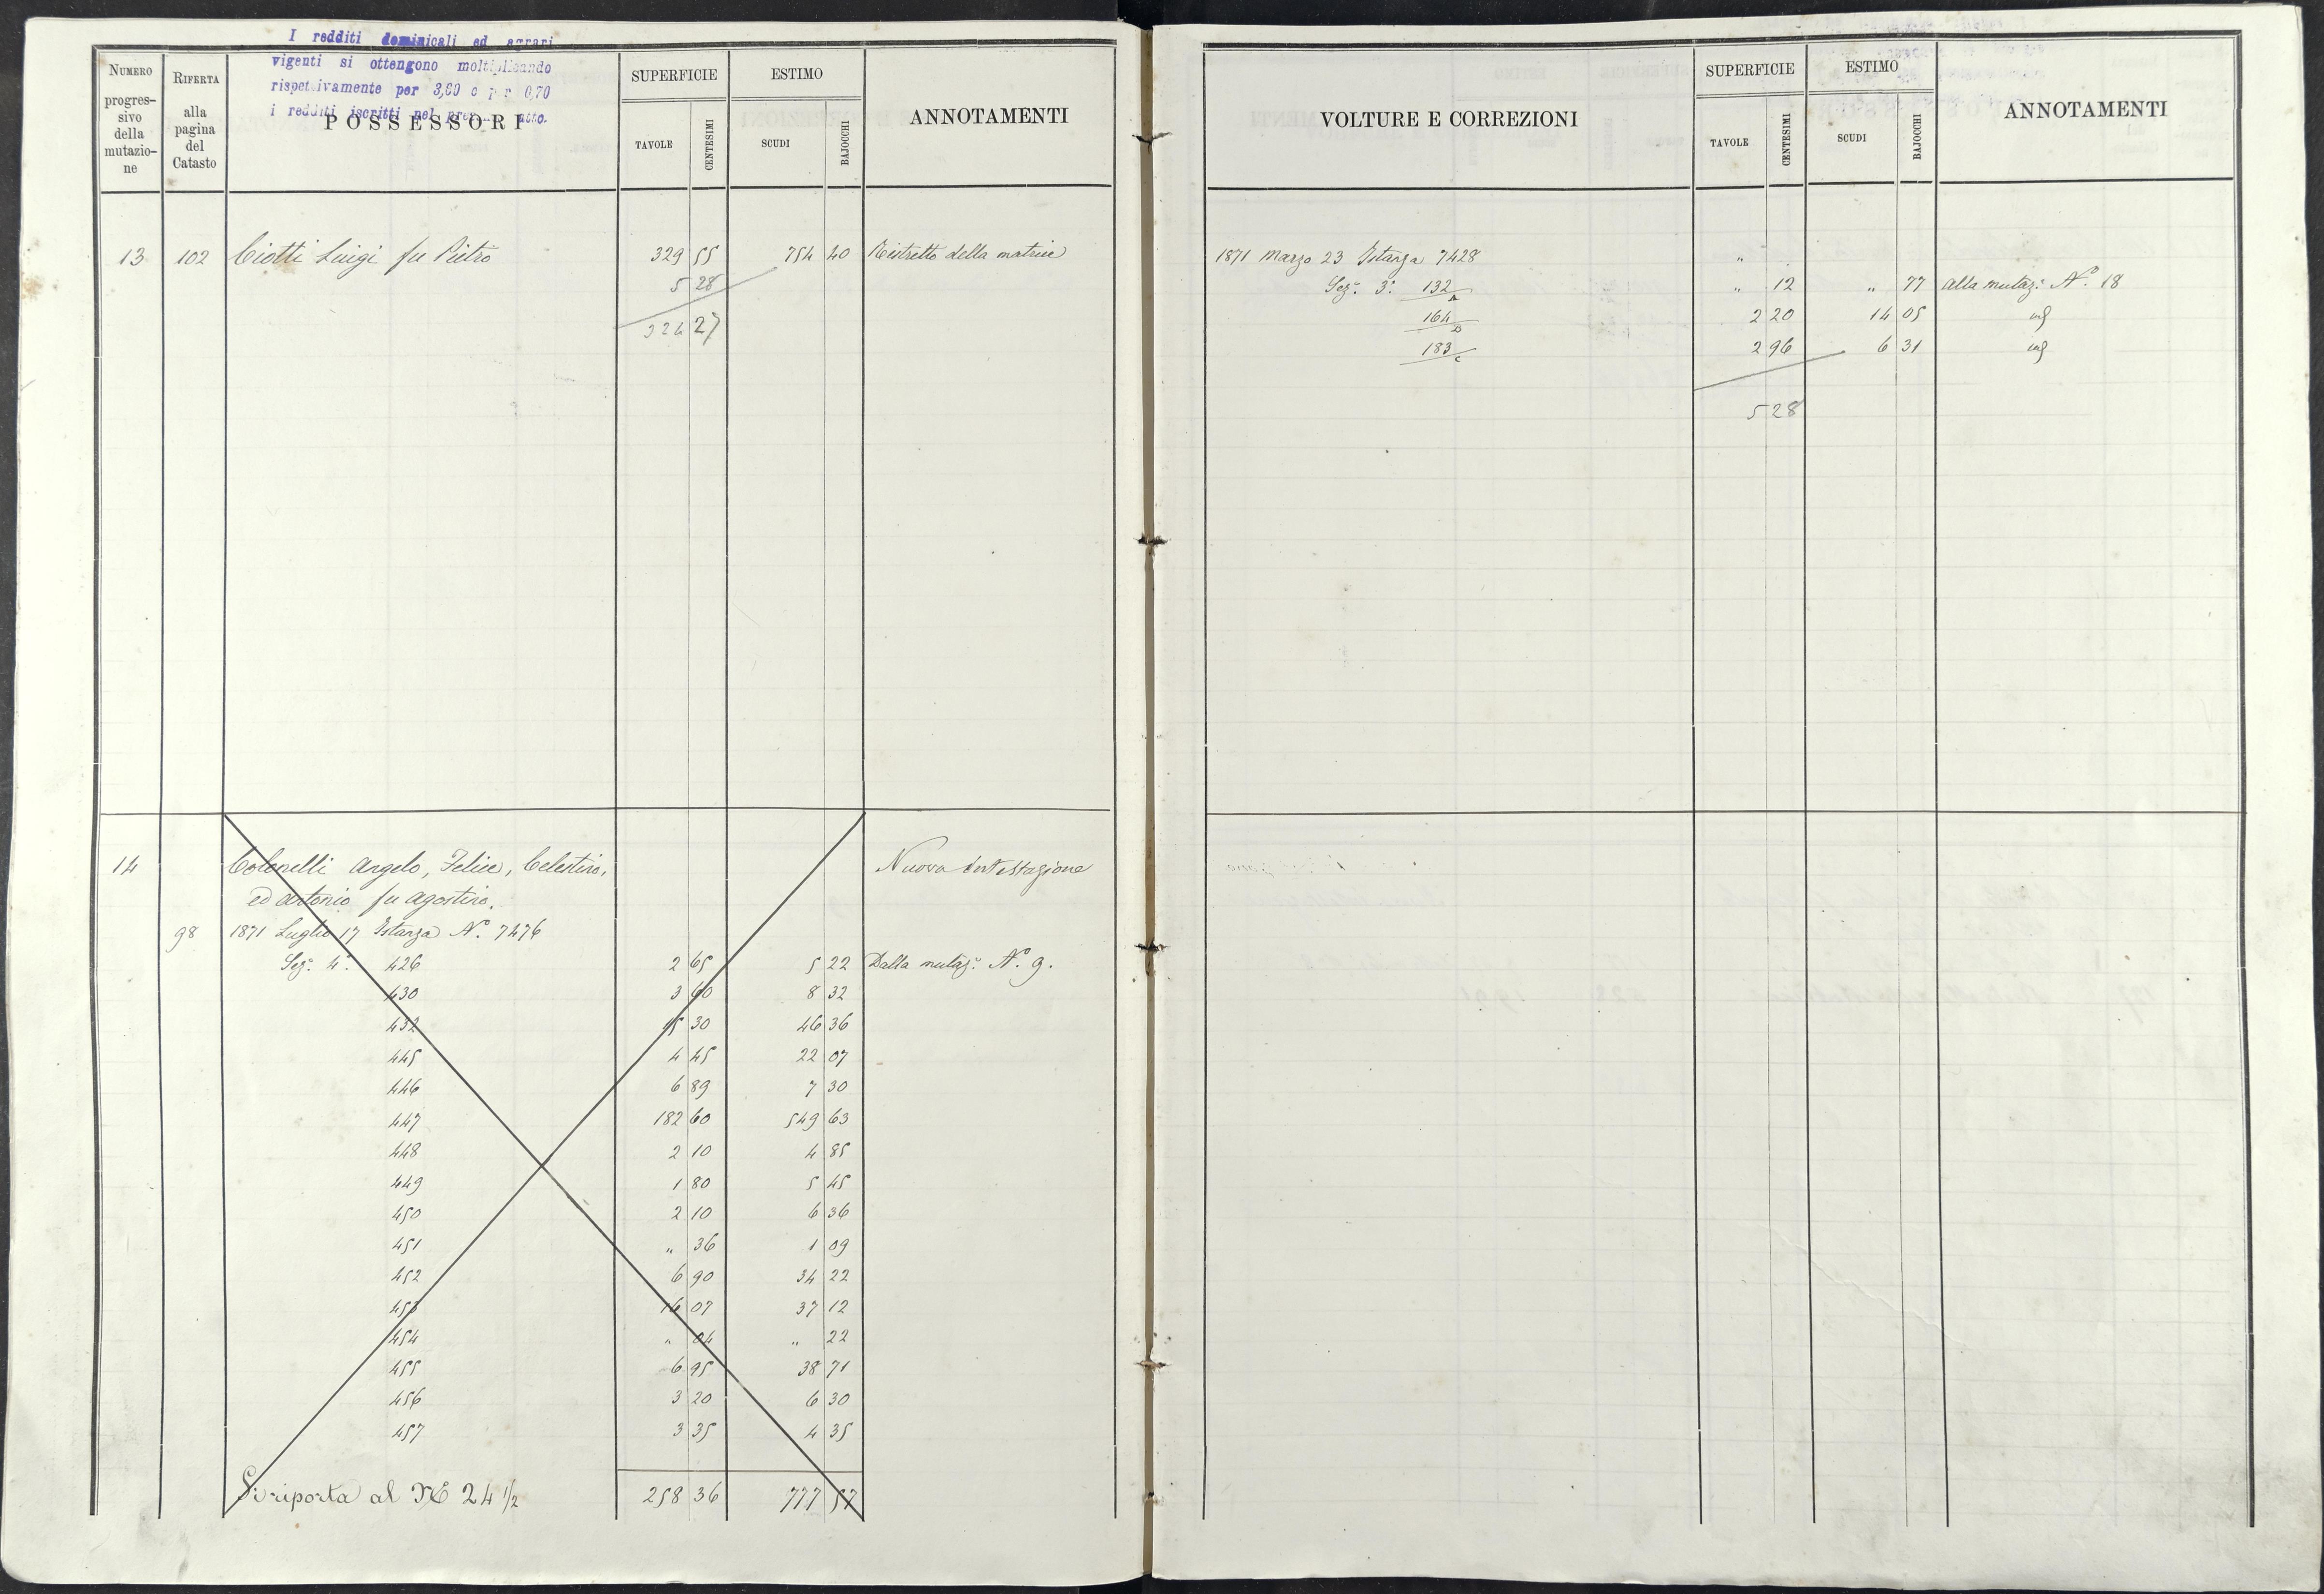 I redditi dominicali ed agrari
vigenti si ottengono moltiplicando
rispettivamente per 3,60 e per 0,70
i redditi iscritti nel atto.
NUMERO progressivo della mutazione
RIFERTA alla pagina del Catasto
POSSESSORI
SUPERFICIE
TAVOLE CENTESIMI
ESTIMO
SCUDI BAJOCCHI
ANNOTAMENTI
13 102 Ciotti Luigi fu Pietro 329 55 754 40 Ristretto della matrice
5 28
324 27
14 Colonelli Angelo, Felice, Celestino, Nuova Intestazione
ed Antonio fu Agostino.
98 1871 Luglio 17 Istanza N.o 7476
Sez.e 4.a 426 2 65 5 22 Dalla mutaz.e N.o 9.
430 3 60 8 32
432 15 30 46 36
445 4 45 22 07
446 6 89 7 30
447 182 60 549 63
448 2 10 4 85
449 1 80 5 45
450 2 10 6 36
451 " 36 1 09
452 6 90 34 22
453 16 07 37 12
454 " 04 " 22
455 6 95 38 71
456 3 20 6 30
457 3 35 4 35
Si riporta al No 24 1/2 258 36 777 57
VOLTURE E CORREZIONI
SUPERFICIE
TAVOLE CENTESIMI
ESTIMO
SCUDI BAJOCCHI
ANNOTAMENTI
1871 Marzo 23 Istanza 7428 "
Sez.e 3.a 132/A " 12 " 77 alla mutaz.e N.o 18
164/B 2 20 14 05 id
183/C 2 96 6 31 id
5 28